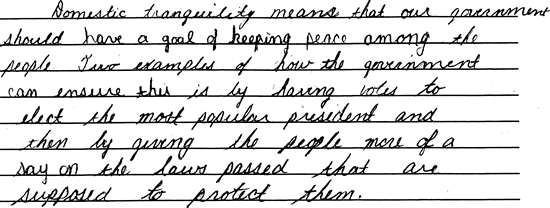 Domestic tranquility means that our government
should have a goal of keeping peace among the
people Two examples of how the government
can ensure this is by having votes to
elect the most popular president and
then by giving the people more of a
say on the laws passed that are
supposed to protect them.